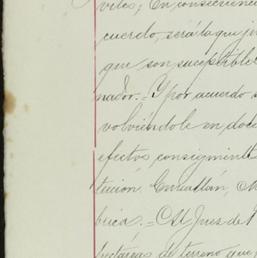 viles; En consecuencia
cuerdo, será la que ju
que son suceptible
nador.=Y por acuerdo
volviéndole en doce
efectos consiguiente
titución, Cintatlán,
brica.=C. Juez de 1
hectáreas de terreno que